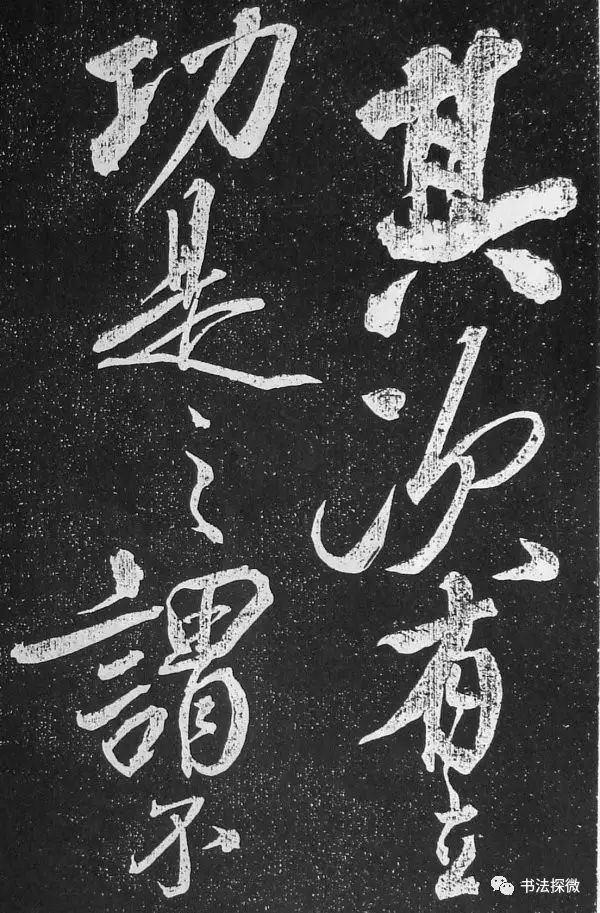 其次有立
功是之謂不
书法探微